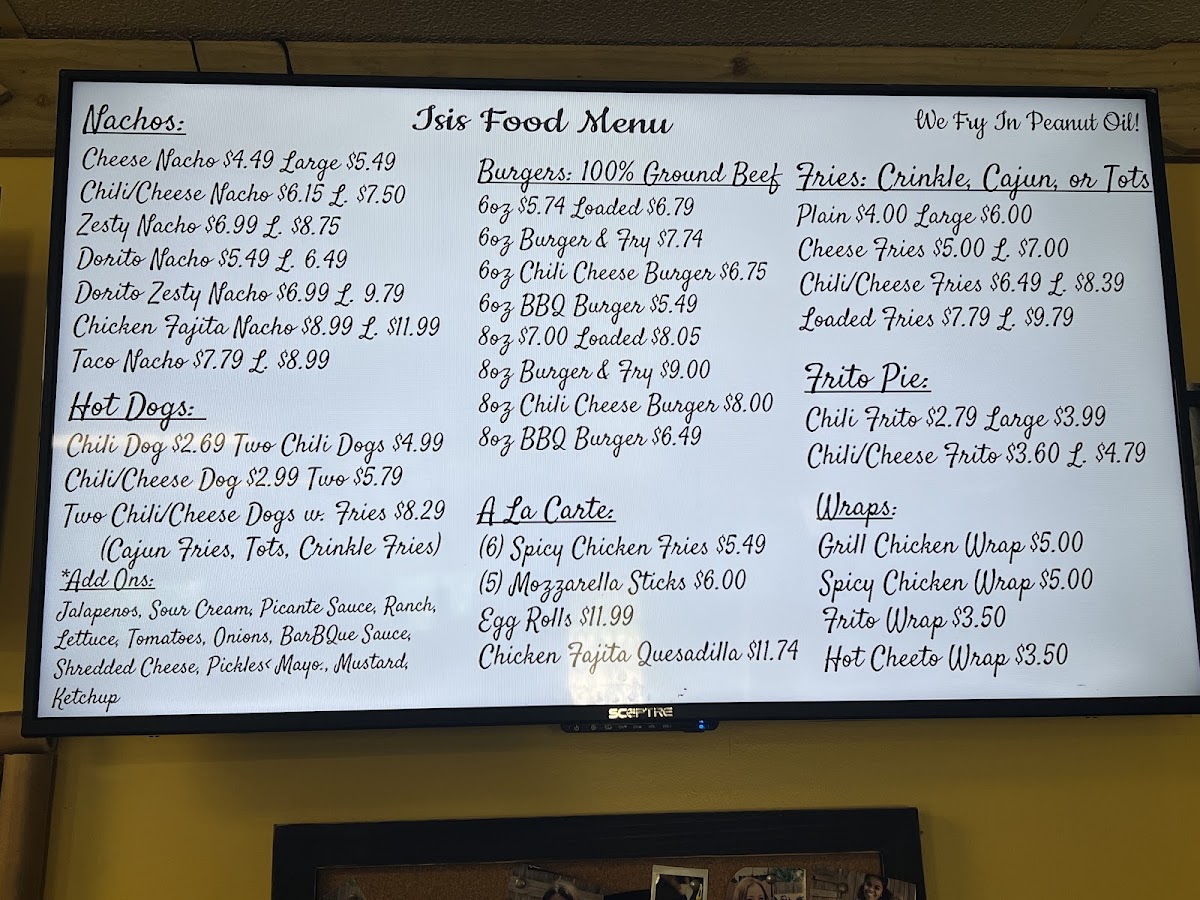 Isis Food Menu
We Fry In Peanut Oil!
Nachos:
Cheese Nacho $4.49 Large $5.49
Chili/Cheese Nacho $6.15 L. $7.50
Zesty Nacho $6.99 L. $8.75
Dorito Nacho $5.49 L. 6.49
Dorito Zesty Nacho $6.99 L. 9.79
Chicken Fajita Nacho $8.99 L. $11.99
Taco Nacho $7.79 L. $8.99
Hot Dogs:
Chili Dog $2.69 Two Chili Dogs $4.99
Chili/Cheese Dog $2.99 Two $5.79
Two Chili/Cheese Dogs w. Fries $8.29
(Cajun Fries, Tots, Crinkle Fries)
*Add Ons:
Jalapenos, Sour Cream, Picante Sauce, Ranch,
Lettuce, Tomatoes, Onions, BarBQue Sauce,
Shredded Cheese, Pickles< Mayo, Mustard,
Ketchup
Burgers: 100% Ground Beef
6oz $5.74 Loaded $6.79
6oz Burger & Fry $7.74
6oz Chili Cheese Burger $6.75
6oz BBQ Burger $5.49
8oz $7.00 Loaded $8.05
8oz Burger & Fry $9.00
8oz Chili Cheese Burger $8.00
8oz BBQ Burger $6.49
A La Carte:
(6) Spicy Chicken Fries $5.49
(5) Mozzarella Sticks $6.00
Egg Rolls $11.99
Chicken Fajita Quesadilla $11.74
Fries: Crinkle, Cajun, or Tots
Plain $4.00 Large $6.00
Cheese Fries $5.00 L. $7.00
Chili/Cheese Fries $6.49 L. $8.39
Loaded Fries $7.79 L. $9.79
Frito Pie:
Chili Frito $2.79 Large $3.99
Chili/Cheese Frito $3.60 L. $4.79
Wraps:
Grill Chicken Wrap $5.00
Spicy Chicken Wrap $5.00
Frito Wrap $3.50
Hot Cheeto Wrap $3.50
SCEPTRE